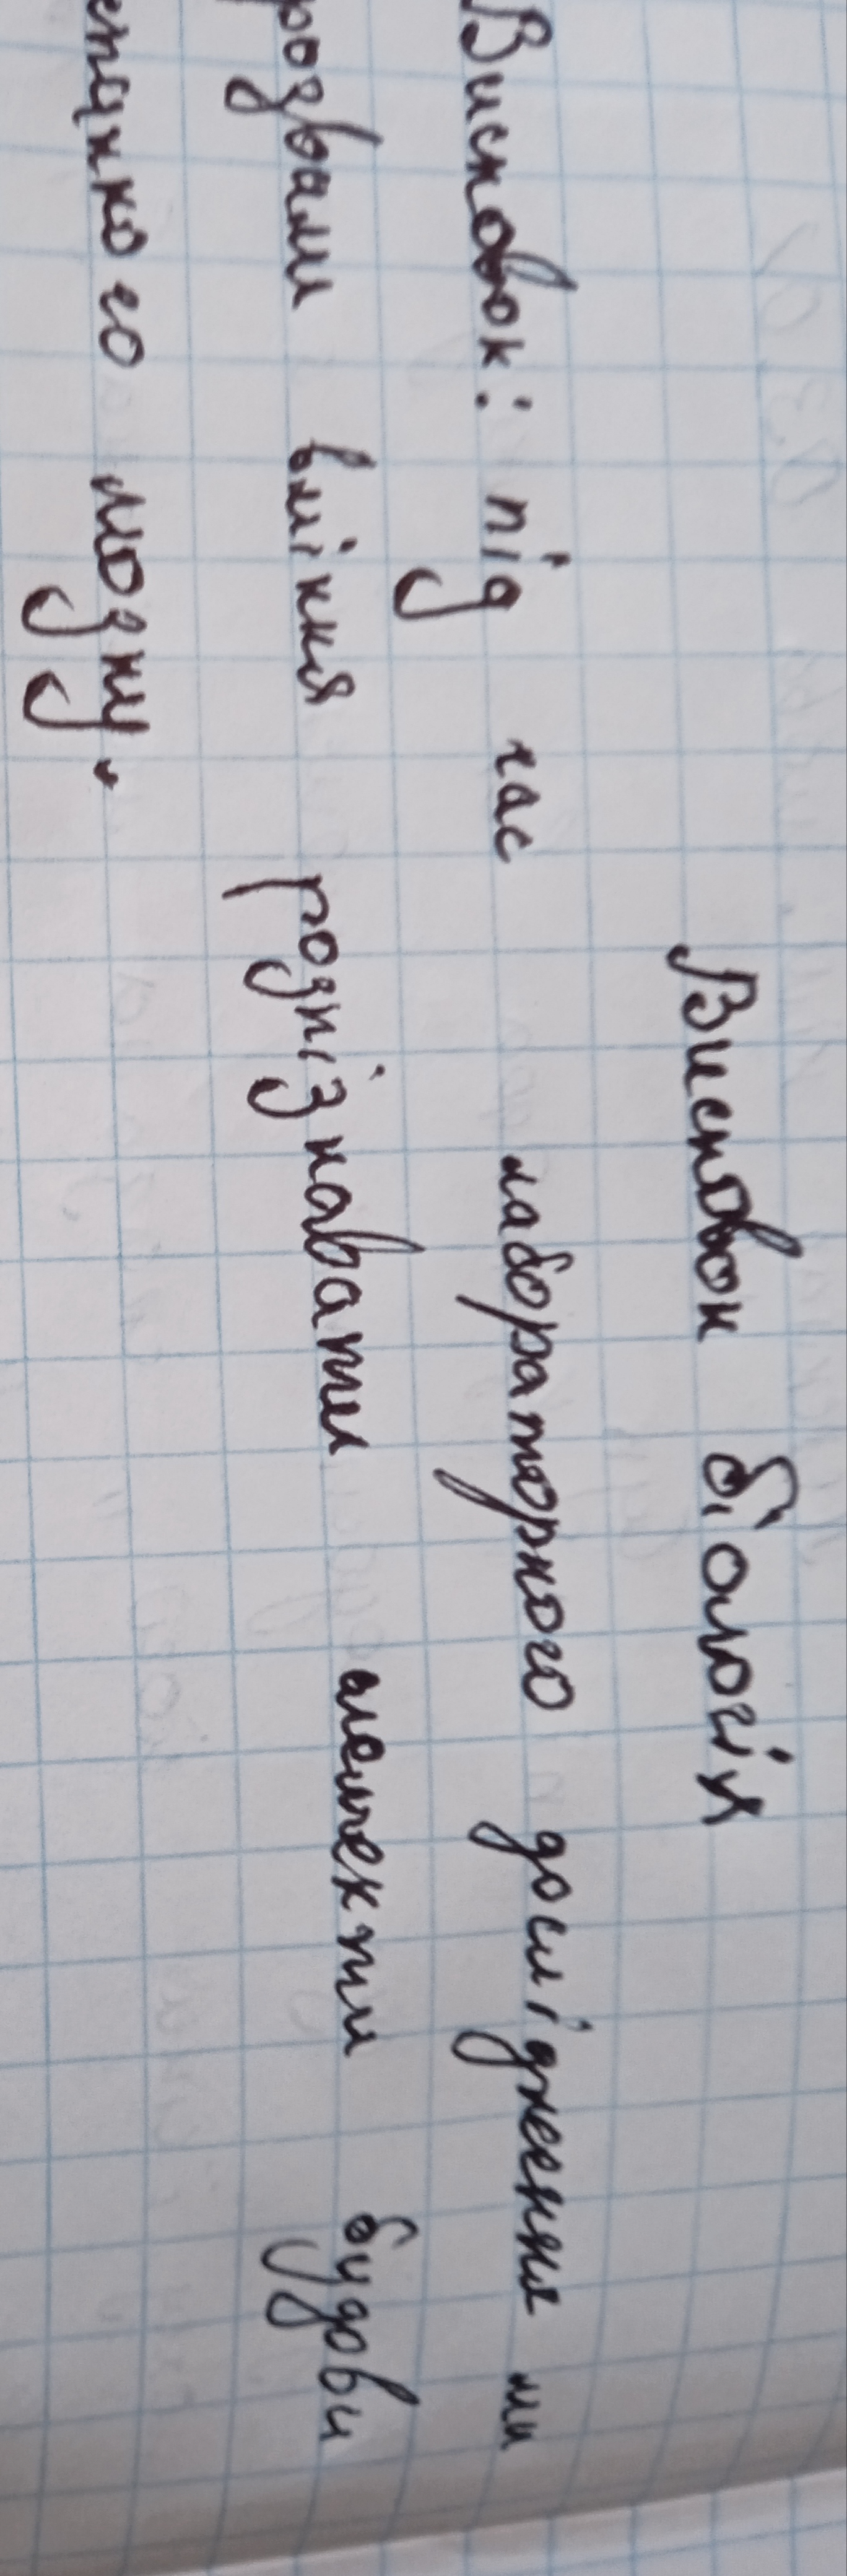 Висновок біологія
Висновок: під час лабораторного дослідження ми
розвали вміння розпізнавати елементи будови
мозку.